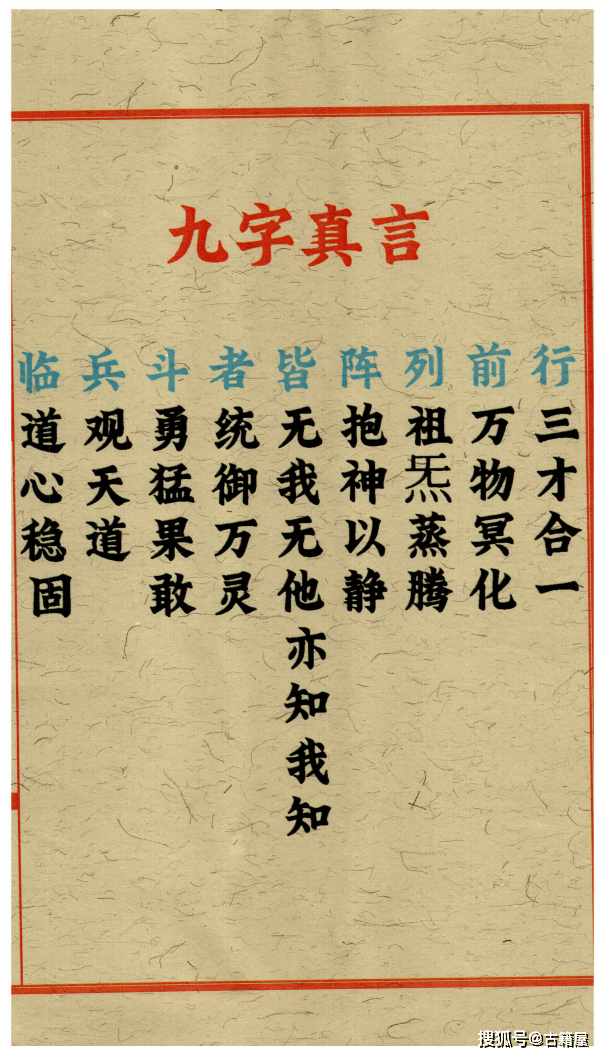 九字真言
临 道心稳固
兵 观天道
斗 勇猛果敢
者 统御万灵
皆 无我无他亦知我知
阵 抱神以静
列 祖炁蒸腾
前 万物冥化
行 三才合一
搜狐号@古籍屋